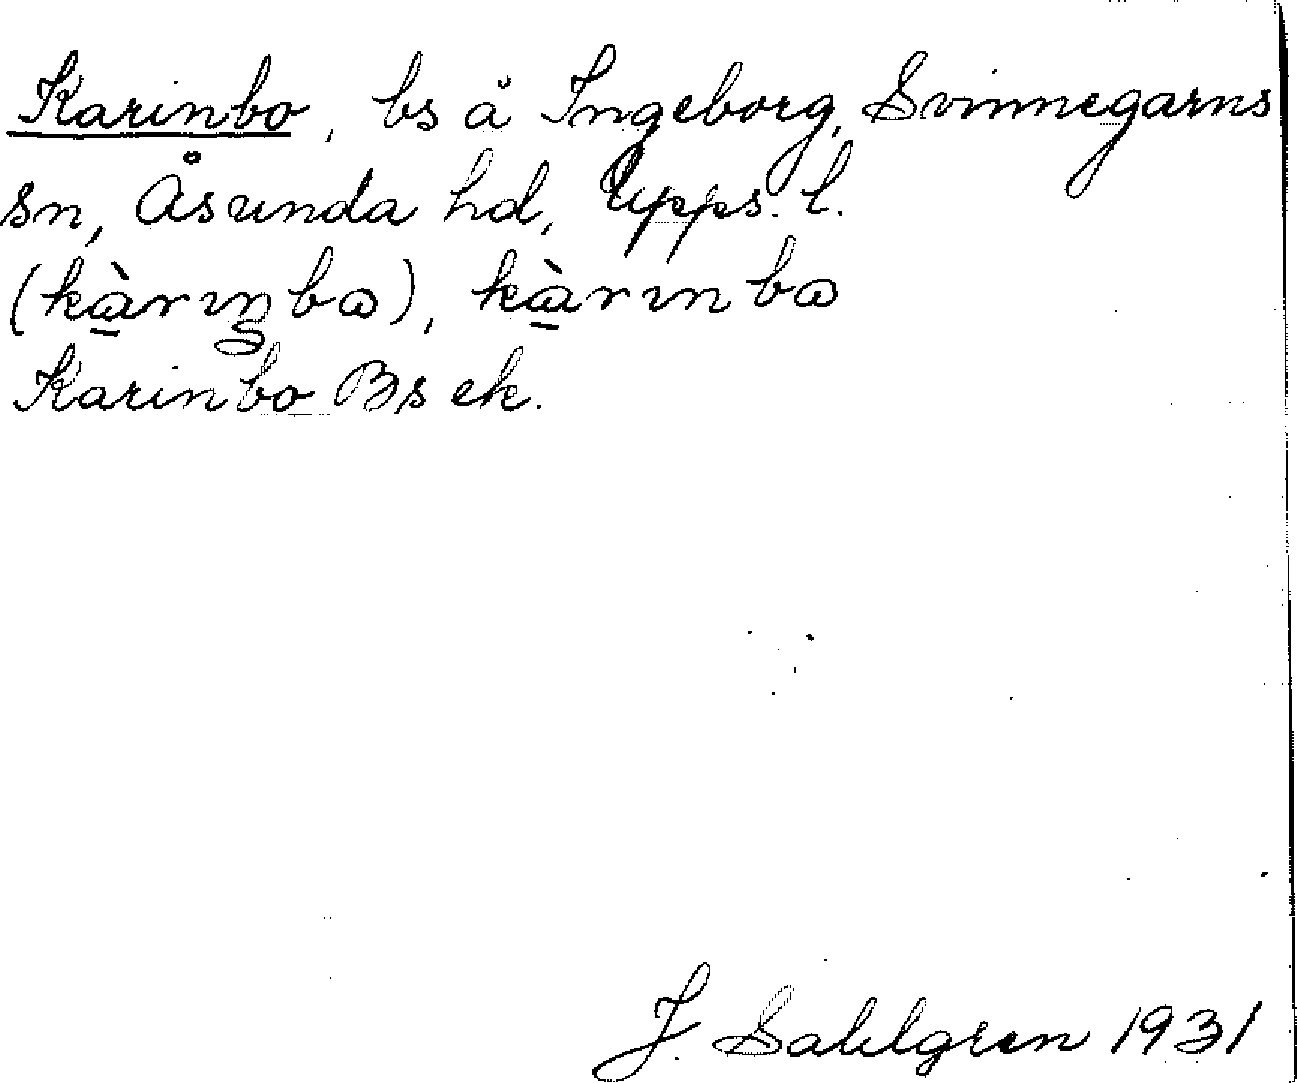 Karinbo, bs å Ingeborg, Svinnegarns
sn, Åsunda hd, Upps. l.
(kàrıŋbɷ), kàrınbɷ
Karinbo Bs ek.
J. Sahlgren 1931